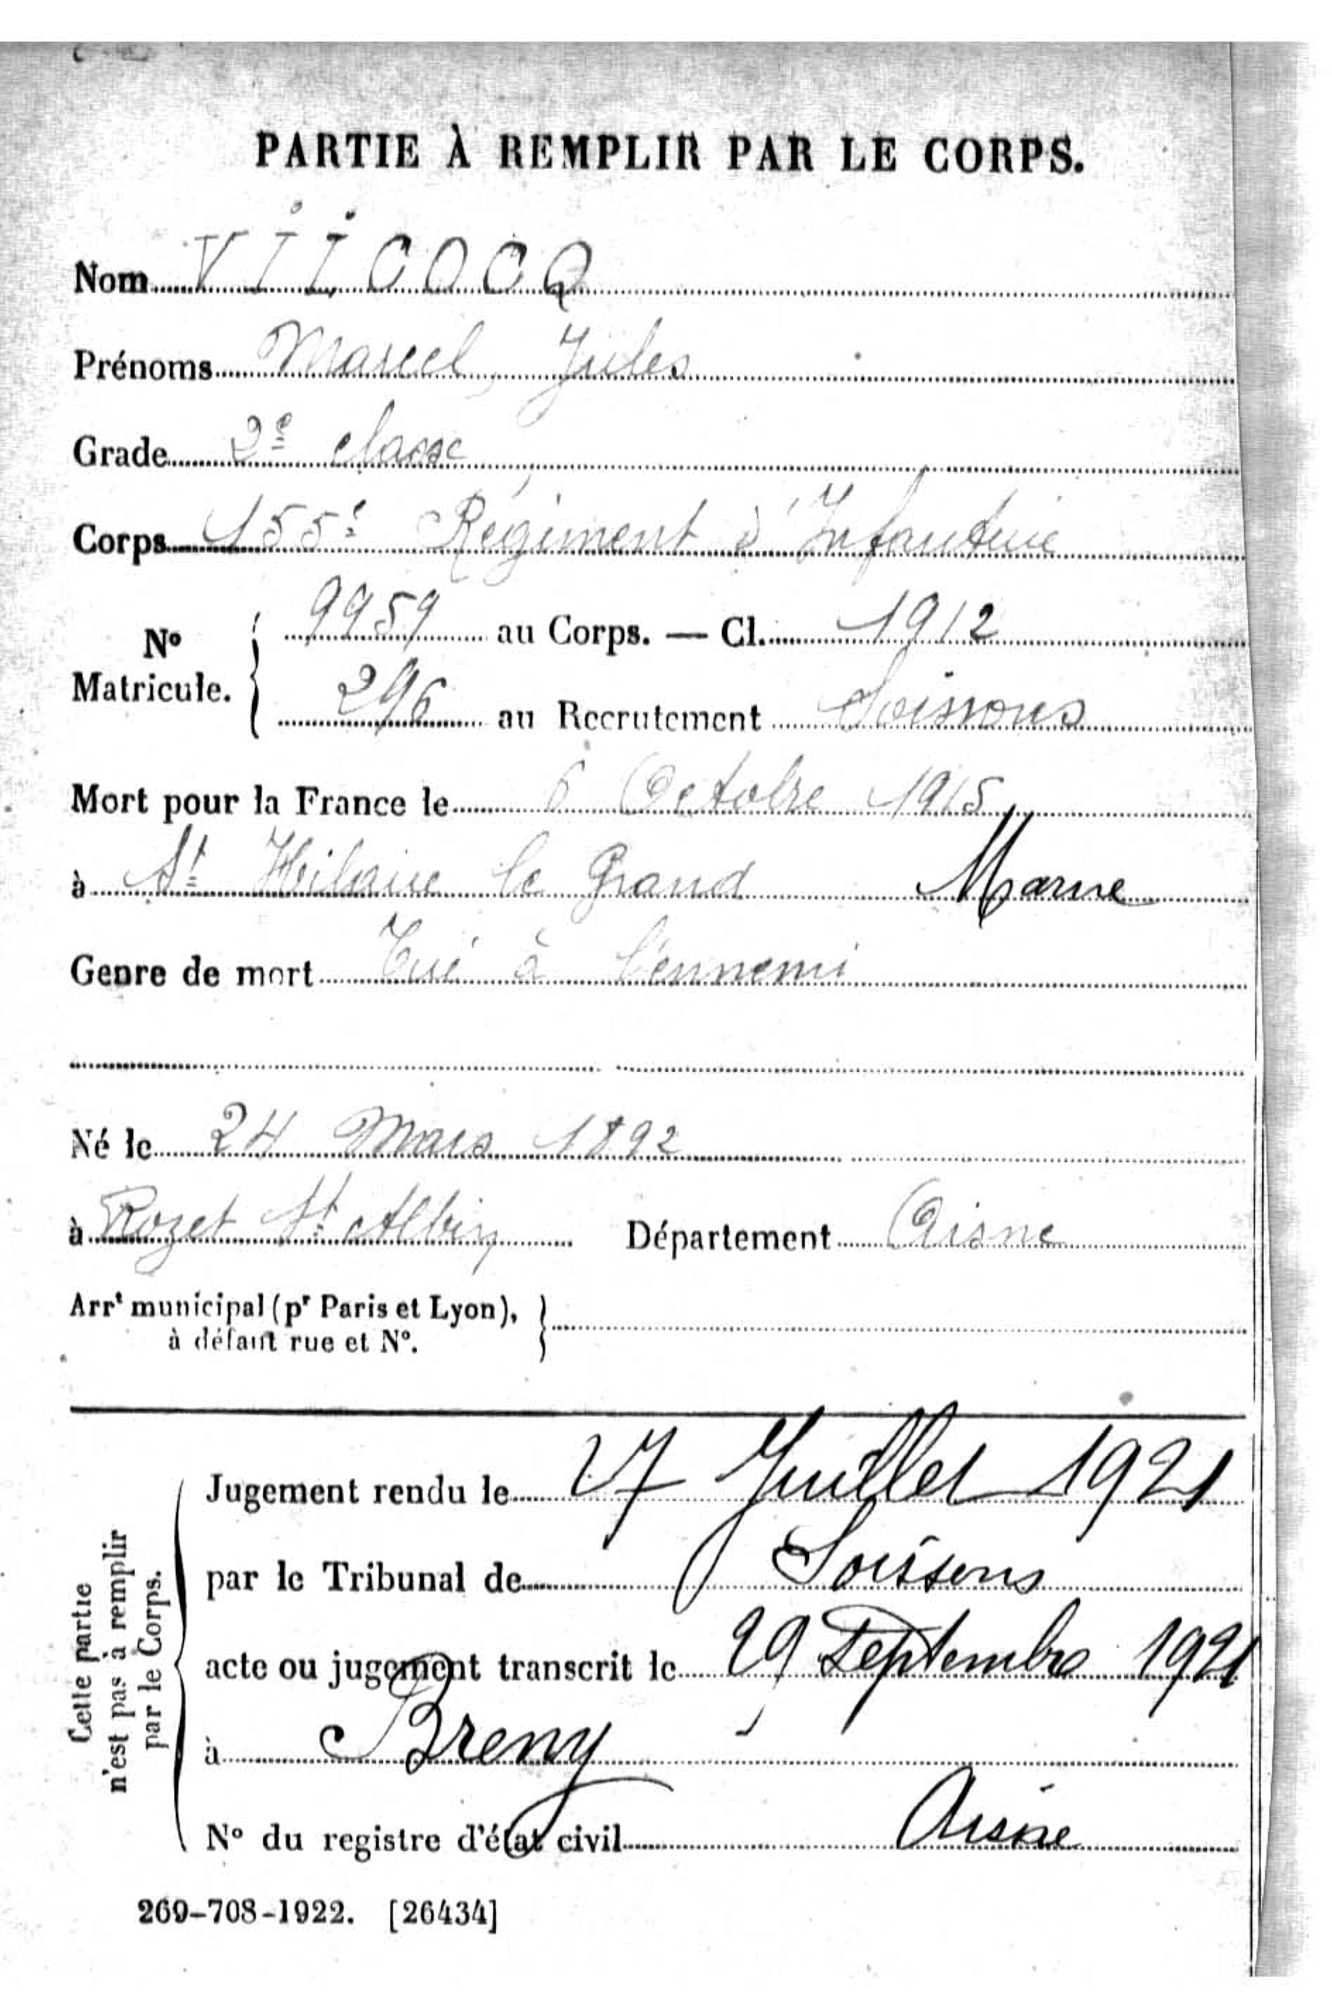 PARTIE À REMPLIR PAR LE CORPS.
Nom VIICOCQ
Prénoms Marcel, Jules
Grade 2e classe
Corps 155e Régiment d'Infanterie
No Matricule. { 9959 au Corps. — Cl. 1912
296 au Recrutement Soissons
Mort pour la France le 6 Octobre 1915
à St Hilaire le Grand Marne
Genre de mort Tué à l'ennemi
Né le 24 Mars 1892
à Rozet St Albin Département Aisne
Arrt municipal (pr Paris et Lyon), }
à défaut rue et No.
Cette partie
n'est pas à remplir
par le Corps.
Jugement rendu le 27 Juillet 1921
par le Tribunal de Soissons
acte ou jugement transcrit le 29 Septembre 1921
à Breny
No du registre d'état civil Aisne
269-708-1922. [26434]